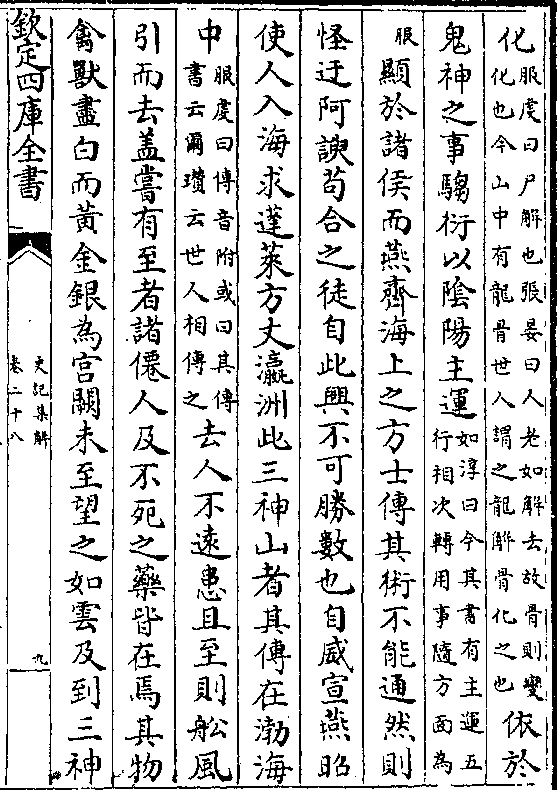 化服虔曰尸解也張晏曰人老如解去故骨則變化也今山中有龍骨世人謂之龍解骨化之也依於
鬼神之事騶衍以陰陽主運如淳曰今其書有主運五行相次轉用事隨方面為
服顯於諸侯而燕齊海上之方士傳其術不能通然則
怪迂阿諛苟合之徒自此興不可勝數也自威宣燕昭
使人入海求蓬萊方丈瀛洲此三神山者其傳在渤海
中服虔曰傳音附或曰其傳書云爾瓚云世人相傳之去人不遠患且至則舩風
引而去盖嘗有至者諸僊人及不死之藥皆在焉其物
禽獸盡白而黃金銀為宫闕未至望之如雲及到三神
欽定四庫全書
史記集解
卷二十八
九